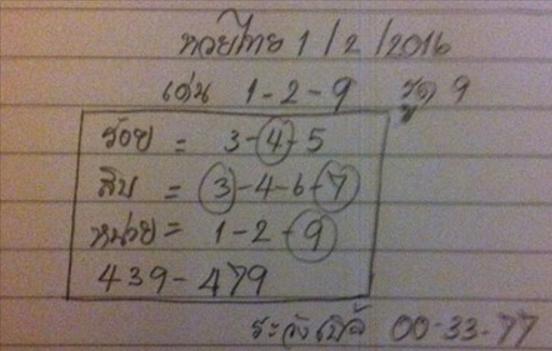 หวยไทย 1/2/2016
เด่น 1-2-9 รูด 9
ร้อย = 3-4-5
สิบ = 3-4-6-7
หน่วย = 1-2-9
439-479
ระวังเบิ้ล 00-33-77